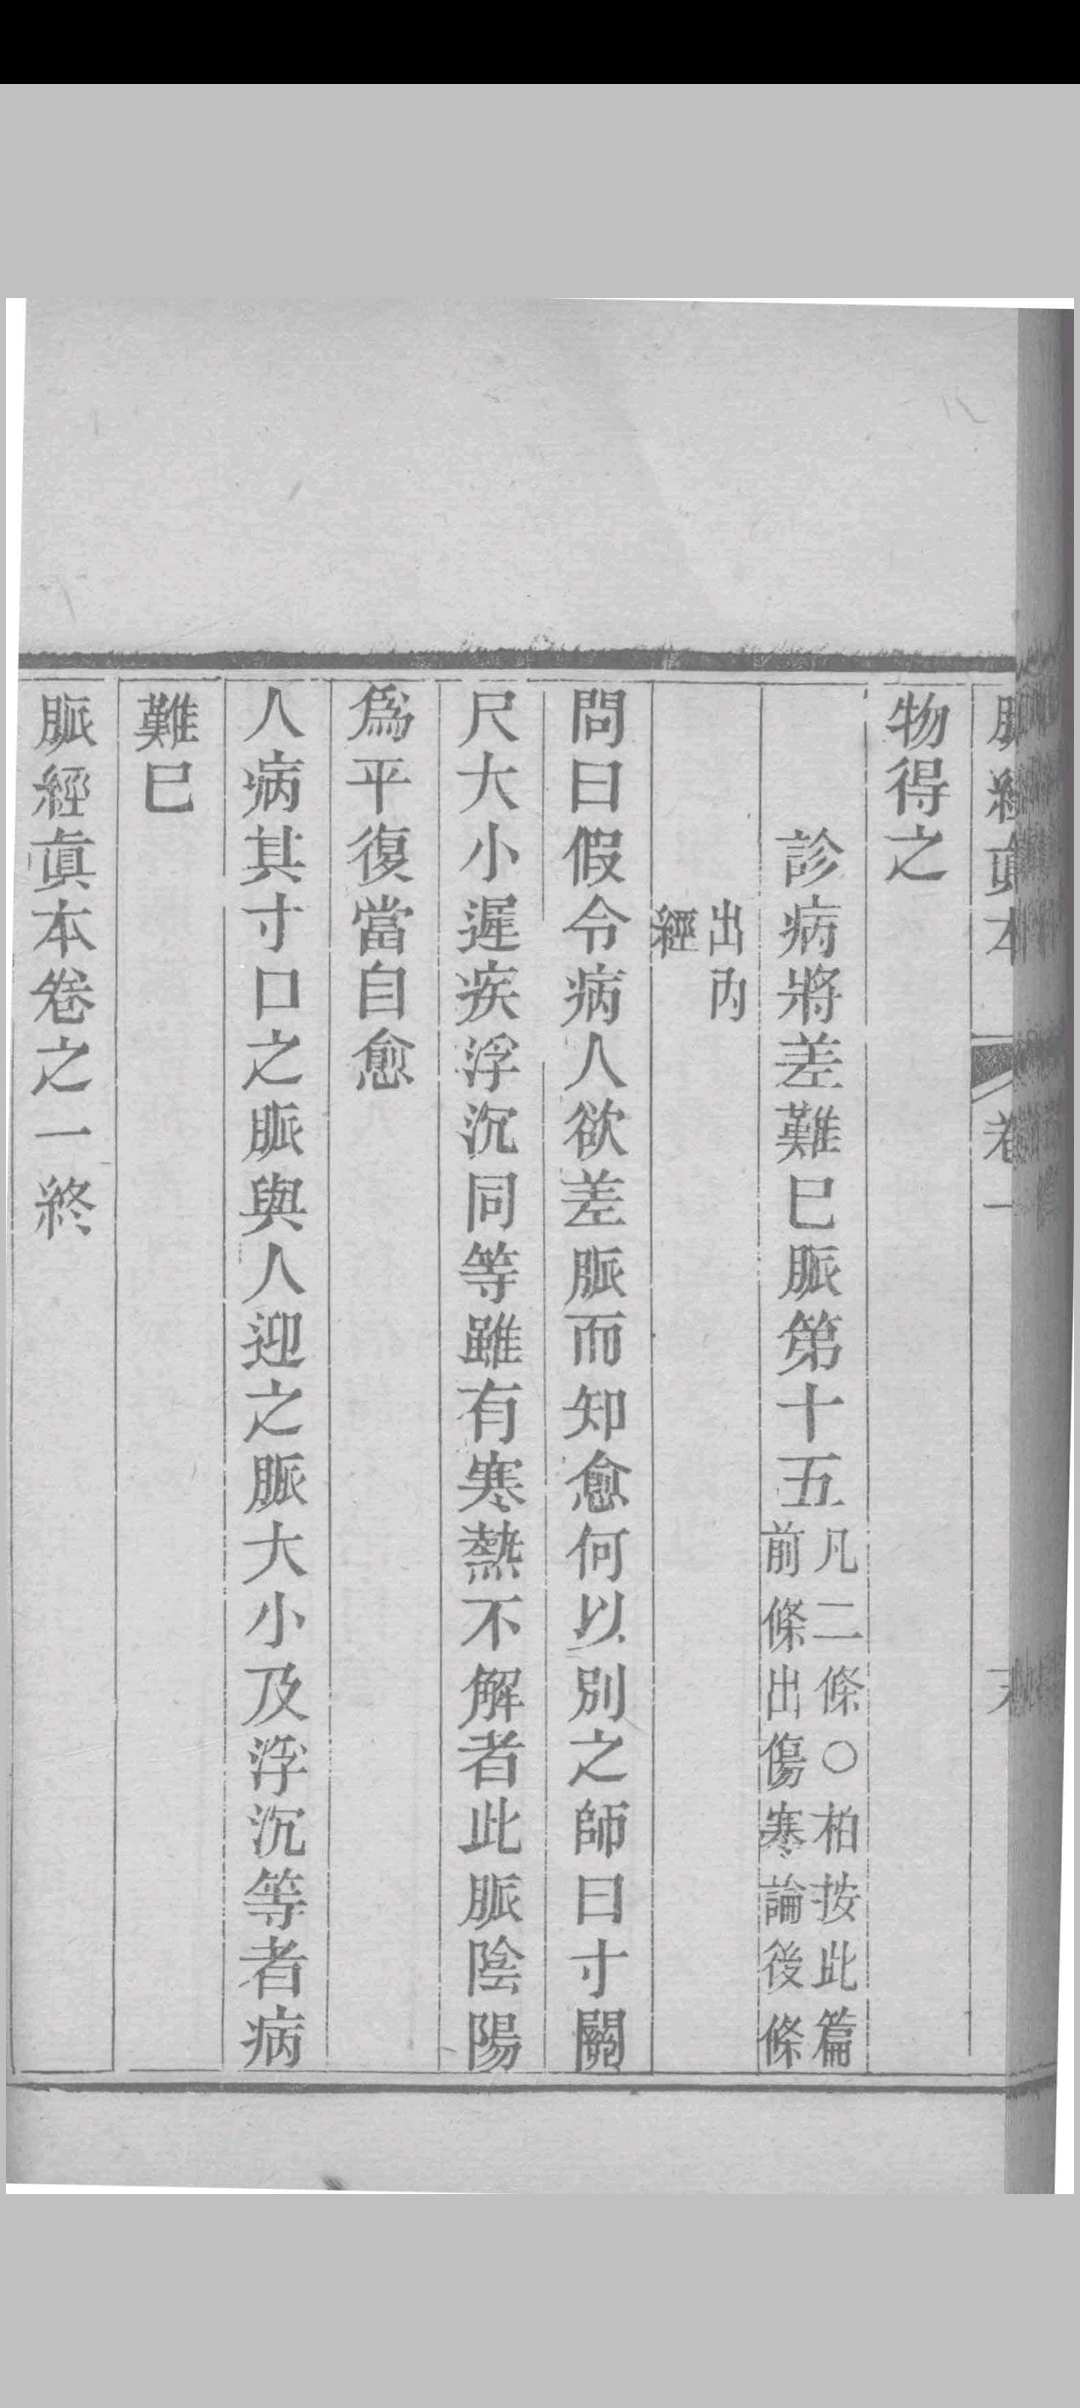 脈經眞本 卷一
物得之
診病將差難已脈第十五 凡二條○柏按此篇
前條出傷寒論後條
出內
經
問曰假令病人欲差脈而知愈何以別之師曰寸關
尺大小遲疾浮沉同等雖有寒熱不解者此脈陰陽
爲平復當自愈
人病其寸口之脈與人迎之脈大小及浮沉等者病
難已
脈經眞本卷之一終